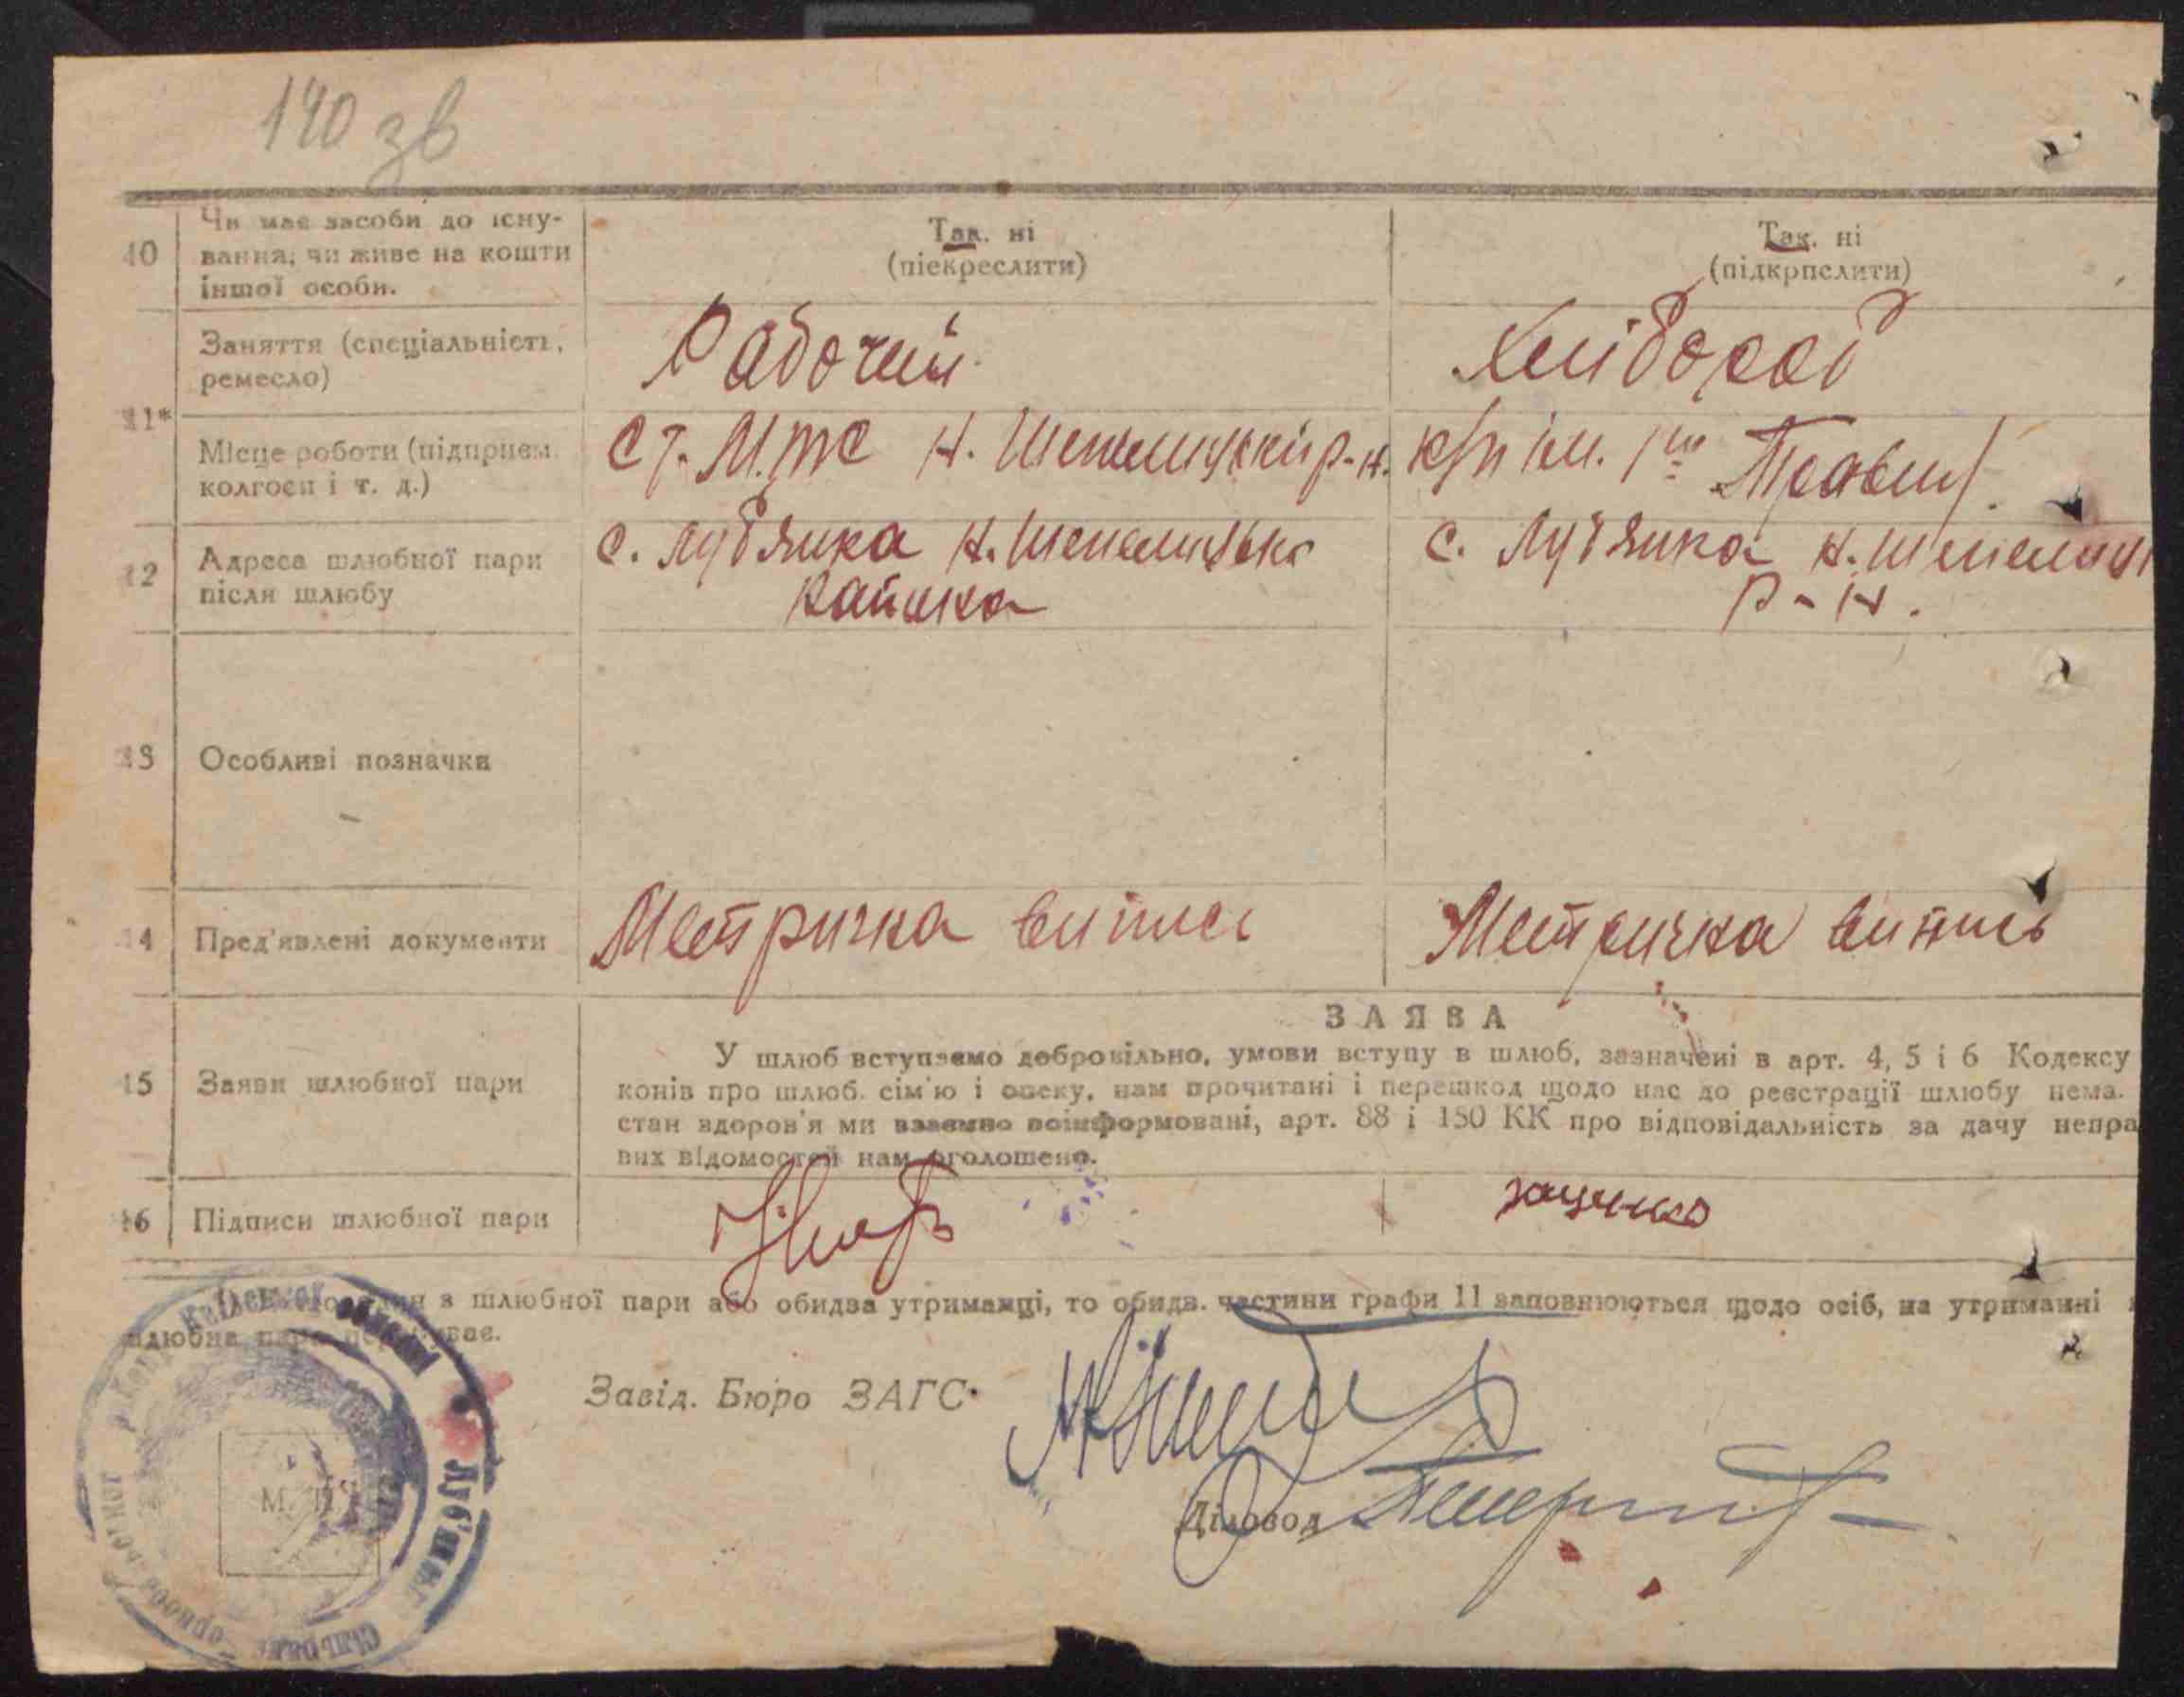 140 зв
10 Чи має засоби до існу-
вання, чи живе на кошти
іншої особи.
Так. ні
(піекреслити)
Так. ні
(підкрпслити)
11*
Заняття (спеціальність,
ремесло)
Рабочий
Хлібороб
Місце роботи (підприєм.
колгосп і т. д.)
Ст. М.ТС Н. Шепелицький р-н.
к/п ім. 1го Травня
12 Адреса шлюбної пари
після шлюбу
с. Луб'янка Н. Шепелицько
района
с. Луб'янка Н. Шепелиц
р-н.
13 Особливі позначки
14 Пред'явлені документи
Метрична випись
Метрична випись
15 Заяви шлюбної пари
ЗАЯВА
У шлюб вступаємо добровільно, умови вступу в шлюб, зазначені в арт. 4, 5 і 6 Кодексу
конів про шлюб. сім'ю і опеку, нам прочитані і перешкод щодо нас до реєстрації шлюбу нема.
стан здоров'я ми взаємно поінформовані, арт. 88 і 150 КК про відповідальність за дачу непра
вих відомостей нам оголошено.
16 Підписи шлюбної пари
з шлюбної пари або обидва утриманці, то обидв. частини графи 11 заповнюються щодо осіб, на утриманні
шлюбна пара перебуває.
Завід. Бюро ЗАГС
Діловод
М. П.
Київської області
Луб'янс